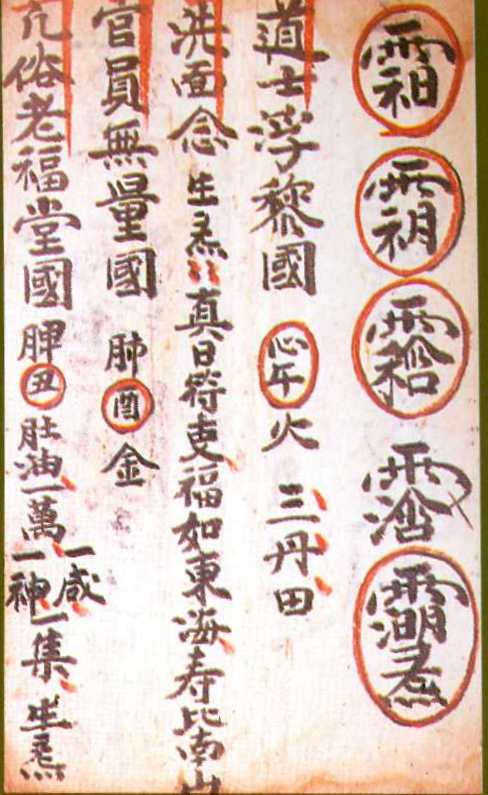 道士浮黎國 心午火 三丹田
洗面念 生炁〻真日符吏福如東海寿比南山
官員無量國 肺酉金
凢俗老福堂國 脾丑肚油一萬一咸一神一集生炁